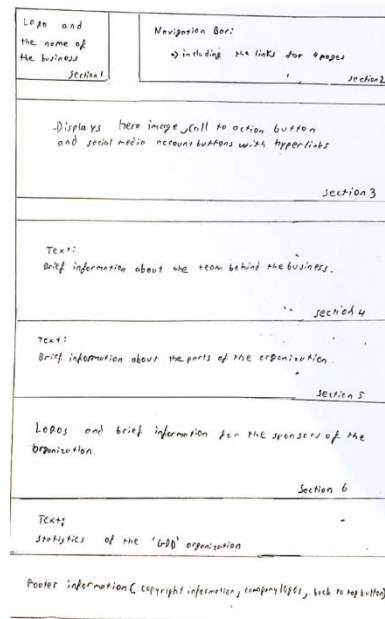 Logo and
the name of
the business
Section 1
Navigation Bar:
including the links for 4 pages
Section 2
-Displays hero image, call to action button
and social media account buttons with hyperlinks
Section 3
Text:
Brief information about the team behind the business.
Section 4
Text:
Brief information about the parts of the organization.
Section 5
Logos and brief information for the sponsors of the
organization.
Section 6
Text:
statistics of the 'GDD' organization
Footer information ( copyright information, company logos, back to top button)